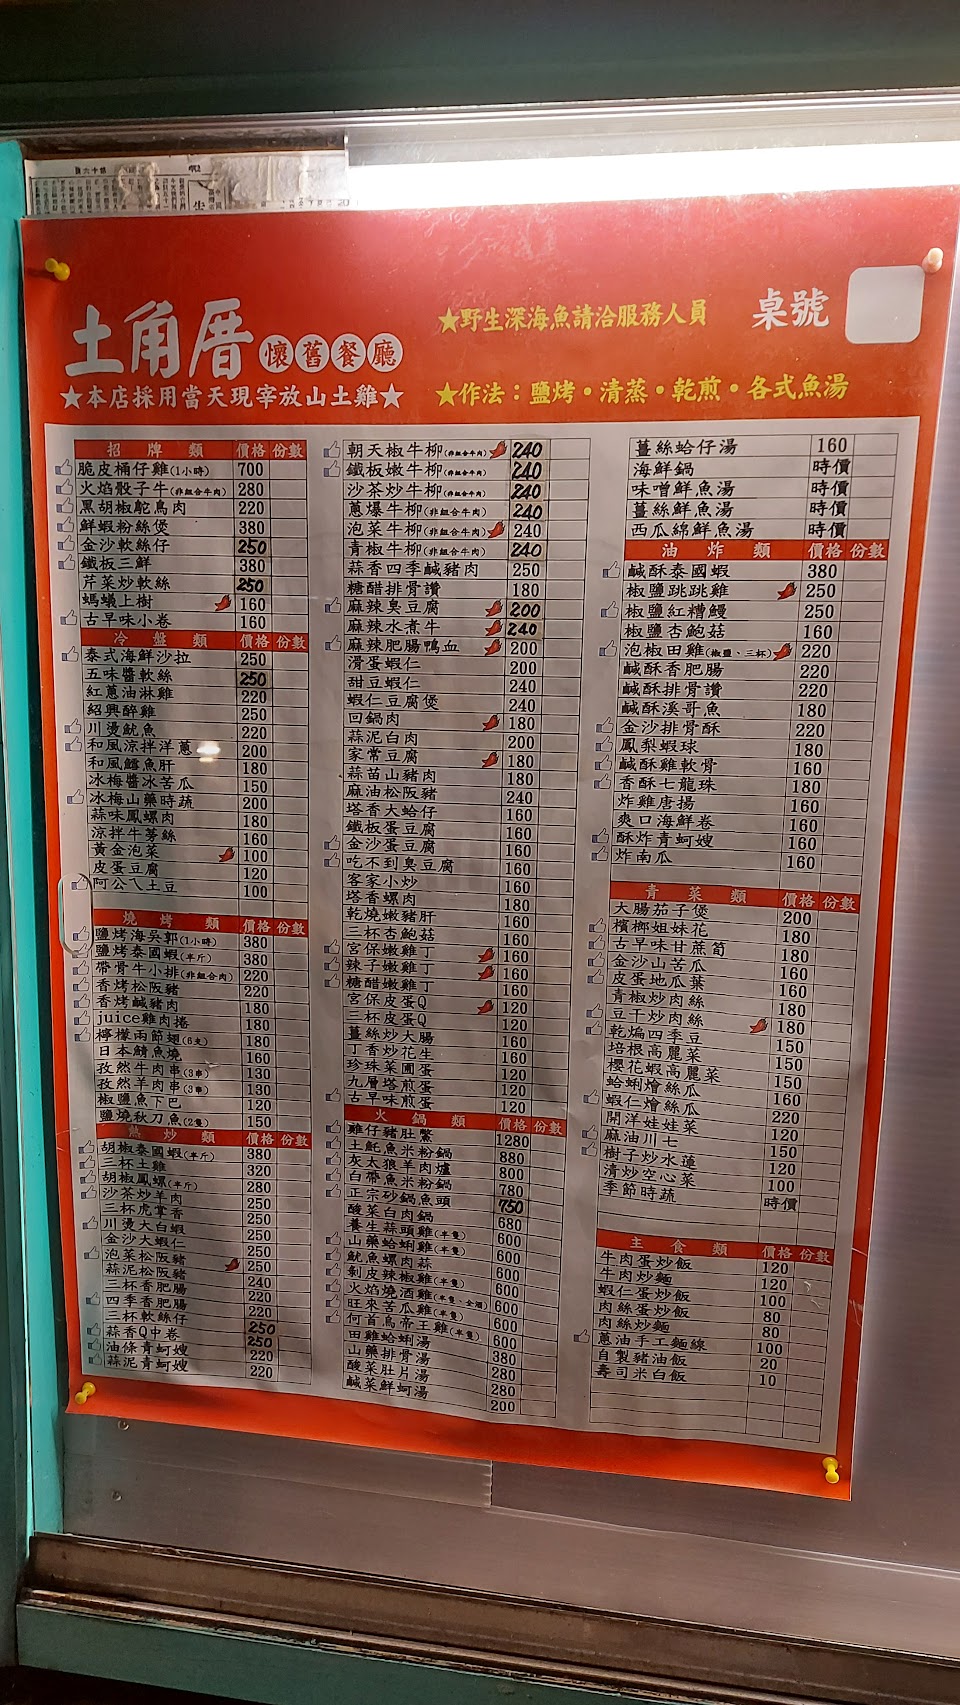 土角厝 懷舊餐廳
★本店採用當天現宰放山土雞★
★野生深海魚請洽服務人員
★作法：鹽烤・清蒸・乾煎・各式魚湯
桌號
招牌類 價格 份數
脆皮桶仔雞(1小時) 700
火焰骰子牛(非組合牛肉) 280
黑胡椒鴕鳥肉 220
鮮蝦粉絲煲 380
金沙軟絲仔 250
鐵板三鮮 380
芹菜炒軟絲 250
螞蟻上樹 160
古早味小卷 160
冷盤類 價格 份數
泰式海鮮沙拉 250
五味醬軟絲 250
紅蔥油淋雞 220
紹興醉雞 250
川燙魷魚 220
和風涼拌洋蔥 200
和風鱈魚肝 180
冰梅醬冰苦瓜 150
冰梅山藥時蔬 200
蒜味鳳螺肉 180
涼拌牛蒡絲 160
黃金泡菜 100
皮蛋豆腐 120
阿公ㄟ土豆 100
燒烤類 價格 份數
鹽烤海吳郭(1小時) 380
鹽烤泰國蝦(半斤) 380
帶骨牛小排(非組合肉) 220
香烤松阪豬 220
香烤鹹豬肉 180
juice雞肉捲 180
檸檬兩節翅(6支) 180
日本鯖魚燒 160
孜然牛肉串(3串) 130
孜然羊肉串(3串) 130
椒鹽魚下巴 120
鹽燒秋刀魚(2隻) 150
熱炒類 價格 份數
胡椒泰國蝦(半斤) 380
三杯土雞 320
胡椒鳳螺(半斤) 280
沙茶炒羊肉 250
三杯虎掌香 250
川燙大白蝦 250
金沙大蝦仁 250
泡菜松阪豬 250
蒜泥松阪豬 240
三杯香肥腸 220
四季香肥腸 220
三杯軟絲仔 250
蒜香Q中卷 250
油條青蚵嫂 220
蒜泥青蚵嫂 220
朝天椒牛柳(非組合牛肉) 240
鐵板嫩牛柳(非組合牛肉) 240
沙茶炒牛柳(非組合牛肉) 240
蔥爆牛柳(非組合牛肉) 240
泡菜牛柳(非組合牛肉) 240
青椒牛柳(非組合牛肉) 240
蒜香四季鹹豬肉 250
糖醋排骨讚 180
麻辣臭豆腐 200
麻辣水煮牛 240
麻辣肥腸鴨血 200
滑蛋蝦仁 200
甜豆蝦仁 240
蝦仁豆腐煲 240
回鍋肉 180
蒜泥白肉 200
家常豆腐 180
蒜苗山豬肉 180
麻油松阪豬 240
塔香大蛤仔 160
鐵板蛋豆腐 160
金沙蛋豆腐 160
吃不到臭豆腐 160
客家小炒 160
塔香螺肉 180
乾燒嫩豬肝 160
三杯杏鮑菇 160
宮保嫩雞丁 160
辣子嫩雞丁 160
糖醋嫩雞丁 160
宮保皮蛋Q 120
三杯皮蛋Q 120
薑絲炒大腸 160
丁香炒花生 160
珍珠菜圃蛋 120
九層塔煎蛋 120
古早味煎蛋 120
火鍋類 價格 份數
雞仔豬肚鱉 1280
土魠魚米粉鍋 880
灰太狼羊肉爐 800
白帶魚米粉鍋 780
正宗砂鍋魚頭 750
酸菜白肉鍋 680
養生蒜頭雞(半隻) 600
山藥蛤蜊雞(半隻) 600
魷魚螺肉蒜 600
剝皮辣椒雞(半隻) 600
火焰燒酒雞(半隻、全酒) 600
旺來苦瓜雞(半隻) 600
何首烏帝王雞(半隻) 600
田雞蛤蜊湯 380
山藥排骨湯 280
酸菜肚片湯 280
鹹菜鮮蚵湯 200
薑絲蛤仔湯 160
海鮮鍋 時價
味噌鮮魚湯 時價
薑絲鮮魚湯 時價
西瓜綿鮮魚湯 時價
油炸類 價格 份數
鹹酥泰國蝦 380
椒鹽跳跳雞 250
椒鹽紅糟鰻 250
椒鹽杏鮑菇 160
泡椒田雞(椒鹽、三杯) 220
鹹酥香肥腸 220
鹹酥排骨讚 220
鹹酥溪哥魚 180
金沙排骨酥 220
鳳梨蝦球 180
鹹酥雞軟骨 160
香酥七龍珠 180
炸雞唐揚 160
爽口海鮮卷 160
酥炸青蚵嫂 160
炸南瓜 160
青菜類 價格 份數
大腸茄子煲 200
檳榔姐妹花 180
古早味甘蔗筍 180
金沙山苦瓜 160
皮蛋地瓜葉 160
青椒炒肉絲 180
豆干炒肉絲 180
乾煸四季豆 150
培根高麗菜 150
櫻花蝦高麗菜 150
蛤蜊燴絲瓜 160
蝦仁燴絲瓜 220
開洋娃娃菜 120
麻油川七 150
樹子炒水蓮 120
清炒空心菜 100
季節時蔬 時價
主食類 價格 份數
牛肉蛋炒飯 120
牛肉炒麵 120
蝦仁蛋炒飯 100
肉絲蛋炒飯 80
肉絲炒麵 80
蔥油手工麵線 100
自製豬油飯 20
壽司米白飯 10